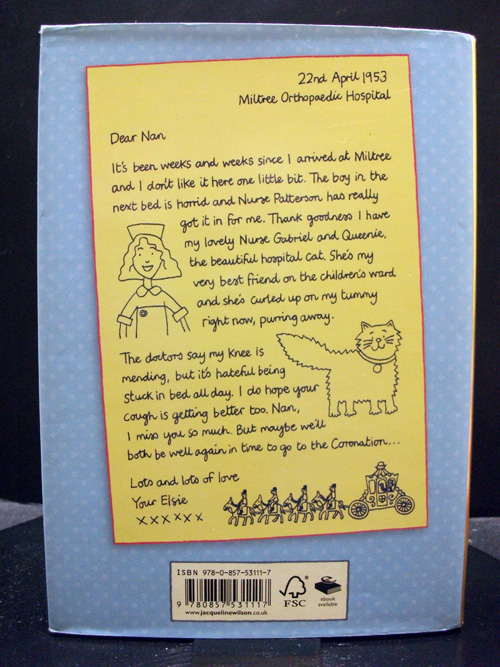 22nd April 1953
Miltree Orthopaedic Hospital
Dear Nan
It's been weeks and weeks since I arrived at Miltree
and I don't like it here one little bit. The boy in the
next bed is horrid and Nurse Patterson has really
got it in for me. Thank goodness I have
my lovely Nurse Gabriel and Queenie,
the beautiful hospital cat. She's my
very best friend on the children's ward
and she's curled up on my tummy
right now, purring away.
The doctors say my knee is
mending, but it's hateful being
stuck in bed all day. I do hope your
cough is getting better too. Nan,
I miss you so much. But maybe we'll
both be well again in time to go to the Coronation...
Lots and lots of love
Your Elsie
xxxxxx
ISBN 978-0-857-53111-7
9 780857 531117
www.jacquelinewilson.co.uk
FSC
ebook
available